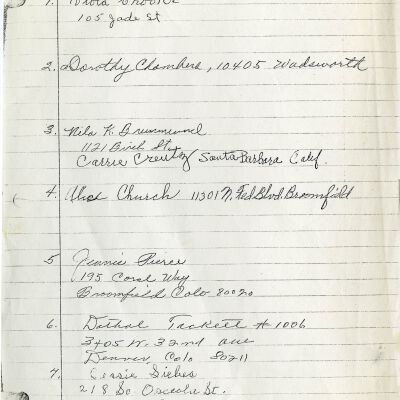 1.
105 Jade St
2. Dorothy Chambers, 10405 Wadsworth
3. Nila K. Drummond
1121 Birch St.
Carrie Creutz Santa Barbara Calif.
4. Church 11301 N. Fed Blvd. Broomfield
5 Jennie Pierce
195 Coral Way
Broomfield Colo 80020
6. Tackett # 1006
3405 W. 32nd ave
Denver, Colo 80211
7.
218 So Osceola St.